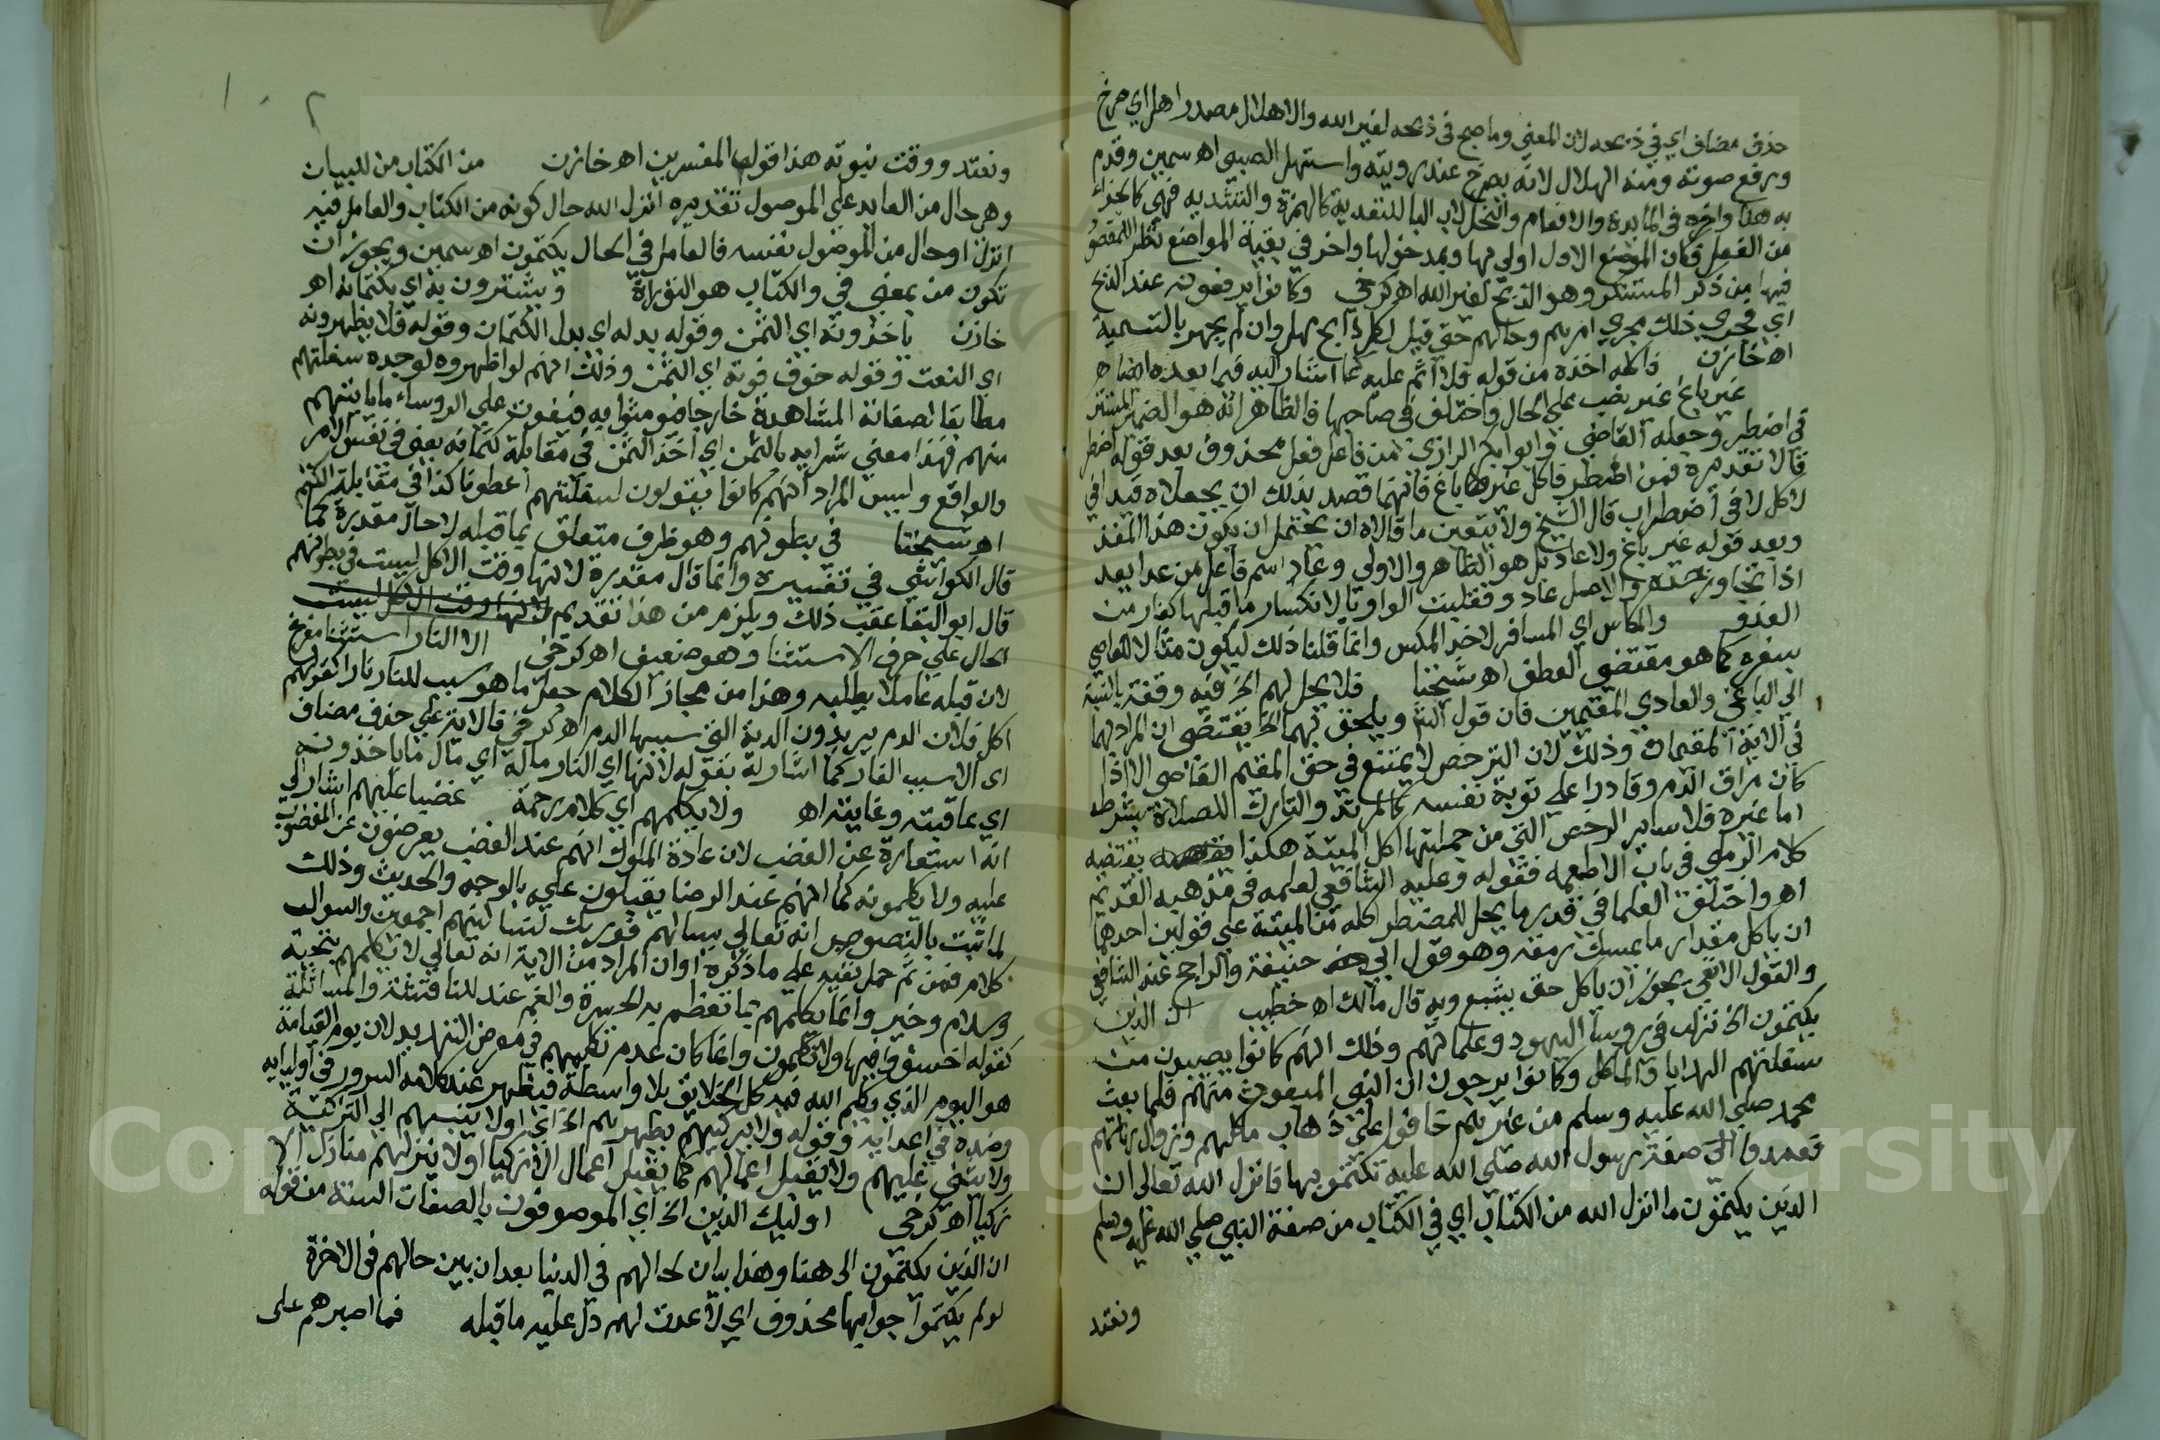 حذف مضاف اي في ذبحه لان المعني وما صيح في ذبحه لغير الله والاهلال مصدر اهل اي صرخ
ورفع صوته ومنه الهلال لانه يصرخ عند رويته واستهل الصبي اه سمين وقدم
به هنا واخره في المايدة والانعام والنحل لان البا للتعدية كالهمزة والتشديد فهي كالجزء
من الفعل فكان الموضع الاول اولي بها وبمدخولها واخر في بقية المواضع نظرا للمقصود
فيها من ذكر المستنكر وهو الذبح لغير الله اه كرخي وكانوا يرفعونه عند الذبح
اي فجري ذلك مجري امرهم وحالهم حتي قيل لكل ذابح مهل وان لم يجهر بالتسمية
اه خازن فاكله اخذه من قوله فلا اثم عليه كما اشار اليه فيما بعده ايضا
غير باغ غير نصب علي الحال واختلف في صاحبها فالظاهر انه هو الضمير المستتر
في اضطر وجعله القاضي وابو بكر الرازي من فاعل فعل محذوف بعد قوله اضطر
قالا تقديره فمن اضطر فاكل غير باغ فانهما قصد بذلك ان يجعلاه قيدا في
الاكل لا في اضطرار قال الشيخ ولا يتعين ما قالاه ان يحتمل ان يكون هذا المقدر
وبعد قوله غير باغ ولا عاد بل هو الظاهر والاولي وعاد اسم فاعل من عدا يعد
اذا تجاوز حده والاصل عادو فقلبت الواو يا لانكسار ما قبلها كغاز من
الغزو والمكاس اي المسافر لاخذ المكس وانما قلنا ذلك ليكون مثالا للعاصي
بسفره كما هو مقتضي العطف اه شيخنا فلا يحل لهم الخ فيه وقفة بالنسبة
الي الباغي والعادي المقيمين فان قول الش ويلحق بهما الخ يقتضي ان المراد بهما
في الاية المقيمان وذلك لان الترخص لا يمتنع في حق المقيم العاصي الا اذا
كان مراق الدم وقادرا علي توبة نفسه كالمرتد والتارك للصلاة بشرطه
اما غيره فلا ساير الرخص التي من جملتها اكل الميتة هكذا يقتضيه
كلام الرملي في باب الاطعمة فقوله وعليه الشافعي لعله في مذهبه القديم
اه واختلف العلما في قدر ما يحل للمضطر اكله من الميتة علي قولين احدهما
ان ياكل مقدار ما يمسك رمقه وهو قول ابي حنيفة والراجح عند الشافعي
والقول الاخر يجوز ان ياكل حتي يشبع وبه قال مالك اه خطيب ان الذين
يكتمون الخ نزلت في روسا اليهود وعلمائهم وذلك انهم كانوا يصيبون من
سفلتهم الهدايا والماكل وكانوا يرجون ان النبي المبعوث منهم فلما بعث
محمد صلي الله عليه وسلم من غيرهم خافوا علي ذهاب ماكلهم وزوال رياستهم
فعمدوا الي صفة رسول الله صلي الله عليه فكتموها فانزل الله تعالي ان
الذين يكتمون ما انزل الله من الكتاب اي في الكتاب من صفة النبي صلي الله عليه وسلم
ونعته
ونعته ووقت نبوته هذا قول المفسرين اه خازن من الكتاب من للبيان
وهي حال من العايد علي الموصول تقديره انزل الله حال كونه من الكتاب والعامل فيه
انزل او حال من الموصول نفسه فالعامل في الحال يكتمون اه سمين ويجوز ان
تكون من بمعني في والكتاب هو التوراة ويشترون به اي بكتمانه اه
خازن ياخذونه اي الثمن وقوله بدله اي بدل الكتمان وقوله فلا يظهرونه
اي النعت وقوله خوف فوته اي الثمن وذلك انهم لو اظهروه لوجده سفلتهم
مطابقا لصفاته المشاهدة خارجا فيومنوا به فيفوت علي الروساء ما ياتيهم
منهم فهذا معني شرايه بالثمن اي اخذ الثمن في مقابلة كتمانه يعني في نفس الامر
والواقع وليس المراد انهم كانوا يقولون لسفلتهم اعطونا كذا في مقابلة الكتم
اه شيخنا في بطونهم وهو ظرف متعلق بما قبله لا حال مقدرة كما
قال الكواشي في تفسيره وانما قال مقدرة لانها وقت الاكل ليست في بطونهم
قال ابو البقا عقب ذلك ويلزم من هذا تقديم لانها وقت الاكل ليست
الحال علي حرف الاستثنا وهو ضعيف اه كرخي الا النار استثنا مفرغ
لان قبله عاملا يطلبه وهذا من مجاز الكلام جعل ما هو سبب للنار نارا كقولهم
اكل فلان الدم يريدون الدية التي سببها الدم اه كرخي فالاية علي حذف مضاف
اي الا سبب النار كما اشار له بقوله لانها اي النار ماله اي مال ما ياخذونه
اي عاقبته وغايته اه ولا يكلمهم اي كلام رحمة غضبا عليهم اشار الي
انه استعارة عن الغضب لان عادة الملوك انهم عند الغضب يعرضون عن المغضوب
عليه ولا يكلمونه كما انهم عند الرضا يقبلون عليه بالوجه والحديث وذلك
لما ثبت بالنصوص انه تعالي يسالهم فوربك لنسالنهم اجمعين والسوال
كلام فمن ثم حمل نفيه علي ما ذكره او ان المراد من الاية انه تعالي لا يكلمهم بتحية
وسلام وخير وانما يكلمهم بما تعظم به الحسرة والغم عند المناقشة والمسائلة
كقوله اخسئوا فيها ولا تكلمون وانما كان عدم تكليمهم في معرض التهديد لان يوم القيامة
هو اليوم الذي يكلم الله فيه كل الخلائق بلا واسطة فيظهر عند كلامه السرور في اوليايه
وضده في اعدايه وقوله ولا يزكيهم يطهرهم الخ اي او لا ينسبهم الي التزكية
ولا يثني عليهم ولا يقبل اعمالهم كما يقبل اعمال الازكيا او لا ينزلهم منازل الا
زكيا اه كرخي اوليك الذين الخ اي الموصوفون بالصفات الستة من قوله
ان الذين يكتمون الي هنا وهذا بيان لحالهم في الدنيا بعد ان بين حالهم في الاخرة
لو لم يكتموا جوابها محذوف اي لاعدت لهم دل عليه ما قبله فما اصبرهم علي